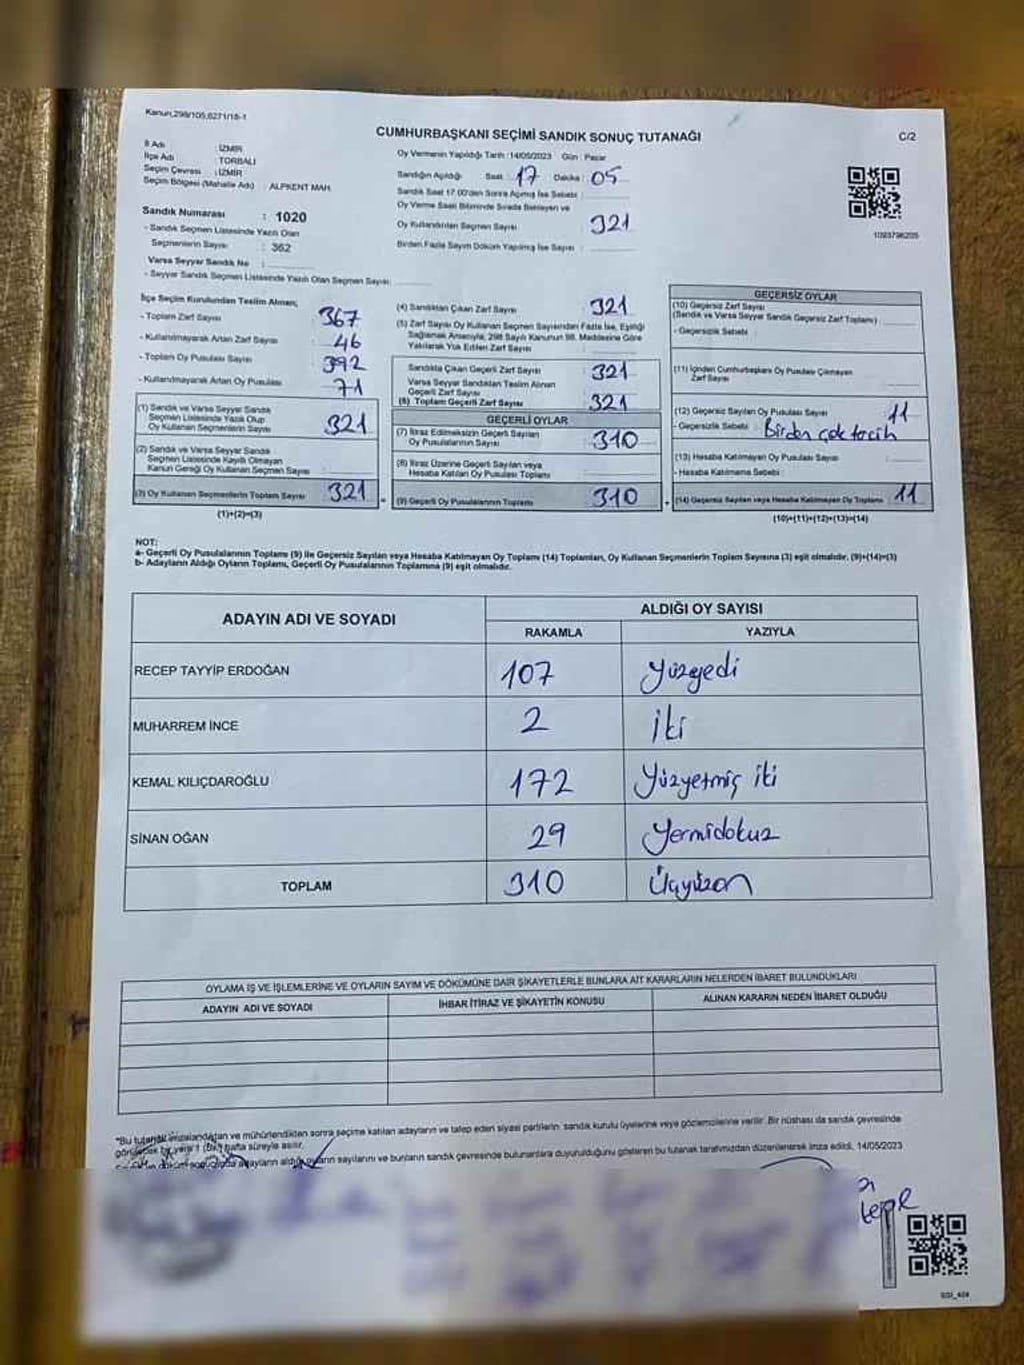 Kanun,298/105,6271/18-1
CUMHURBAŞKANI SEÇİMİ SANDIK SONUÇ TUTANAĞI
C/2
İl Adı : İZMİR
İlçe Adı : TORBALI
Seçim Çevresi : İZMİR
Seçim Bölgesi (Mahalle Adı) : ALPKENT MAH.
Sandık Numarası : 1020
- Sandık Seçmen Listesinde Yazılı Olan
Seçmenlerin Sayısı : 362
Varsa Seyyar Sandık No :
- Seyyar Sandık Seçmen Listesinde Yazılı Olan Seçmen Sayısı:
Oy Vermenin Yapıldığı Tarih :14/05/2023 Gün : Pazar
Sandığın Açıldığı Saat : 17 Dakika : 05
Sandık Saat 17.00'den Sonra Açılmış İse Sebebi :
Oy Verme Saati Bitiminde Sırada Bekleyen ve
Oy Kullandırılan Seçmen Sayısı 321
Birden Fazla Sayım Döküm Yapılmış İse Sayısı :
İlçe Seçim Kurulundan Teslim Alınan;
- Toplam Zarf Sayısı 367
- Kullanılmayarak Artan Zarf Sayısı 46
- Toplam Oy Pusulası Sayısı 392
- Kullanılmayarak Artan Oy Pusulası 71
(1) Sandık ve Varsa Seyyar Sandık
Seçmen Listesinde Yazılı Olup
Oy Kullanan Seçmenlerin Sayısı 321
(2) Sandık ve Varsa Seyyar Sandık
Seçmen Listesinde Kayıtlı Olmayan
Kanun Gereği Oy Kullanan Seçmen Sayısı
(3) Oy Kullanan Seçmenlerin Toplam Sayısı 321
(1)+(2)=(3)
(4) Sandıktan Çıkan Zarf Sayısı 321
(5) Zarf Sayısı Oy Kullanan Seçmen Sayısından Fazla İse, Eşitliği
Sağlamak Amacıyla, 298 Sayılı Kanunun 98. Maddesine Göre
Yakılarak Yok Edilen Zarf Sayısı
Sandıkta Çıkan Geçerli Zarf Sayısı 321
Varsa Seyyar Sandıktan Teslim Alınan
Geçerli Zarf Sayısı
(6) Toplam Geçerli Zarf Sayısı 321
GEÇERLİ OYLAR
(7) İtiraz Edilmeksizin Geçerli Sayılan
Oy Pusulalarının Sayısı 310
(8) İtiraz Üzerine Geçerli Sayılan veya
Hesaba Katılan Oy Pusulası Toplamı
(9) Geçerli Oy Pusulalarının Toplamı 310
GEÇERSİZ OYLAR
(10) Geçersiz Zarf Sayısı
(Sandık ve Varsa Seyyar Sandık Geçersiz Zarf Toplamı)
- Geçersizlik Sebebi
(11) İçinden Cumhurbaşkanı Oy Pusulası Çıkmayan
Zarf Sayısı
(12) Geçersiz Sayılan Oy Pusulası Sayısı 11
- Geçersizlik Sebebi : Birden çok tercih
(13) Hesaba Katılmayan Oy Pusulası Sayısı
- Hesaba Katılmama Sebebi
(14) Geçersiz Sayılan veya Hesaba Katılmayan Oy Toplamı 11
(10)+(11)+(12)+(13)=(14)
NOT:
a- Geçerli Oy Pusulalarının Toplamı (9) ile Geçersiz Sayılan veya Hesaba Katılmayan Oy Toplamı (14) Toplamları, Oy Kullanan Seçmenlerin Toplam Sayısına (3) eşit olmalıdır. (9)+(14)=(3)
b- Adayların Aldığı Oyların Toplamı, Geçerli Oy Pusulalarının Toplamına (9) eşit olmalıdır.
ADAYIN ADI VE SOYADI
ALDIĞI OY SAYISI
RAKAMLA YAZIYLA
RECEP TAYYİP ERDOĞAN 107 Yüzyedi
MUHARREM İNCE 2 İki
KEMAL KILIÇDAROĞLU 172 Yüzyetmiş iki
SİNAN OĞAN 29 Yermidokuz
TOPLAM 310 Üçyüzon
OYLAMA İŞ VE İŞLEMLERİNE VE OYLARIN SAYIM VE DÖKÜMÜNE DAİR ŞİKAYETLERLE BUNLARA AİT KARARLARIN NELERDEN İBARET BULUNDUKLARI
ADAYIN ADI VE SOYADI İHBAR İTİRAZ VE ŞİKAYETİN KONUSU ALINAN KARARIN NEDEN İBARET OLDUĞU
*Bu tutanak imzalandıktan ve mühürlendikten sonra seçime katılan adayların ve talep eden siyasi partilerin sandık kurulu üyelerine veya gözlemcilerine verilir. Bir nüshası da sandık çevresinde
görülecek bir yere 1 (Bir) hafta süreyle asılır.
adayların aldık oyların sayılarını ve bunların sandık çevresinde bulunanlara duyurulduğunu gösteren bu tutanak tarafımızdan düzenlenerek imza edildi. 14/05/2023